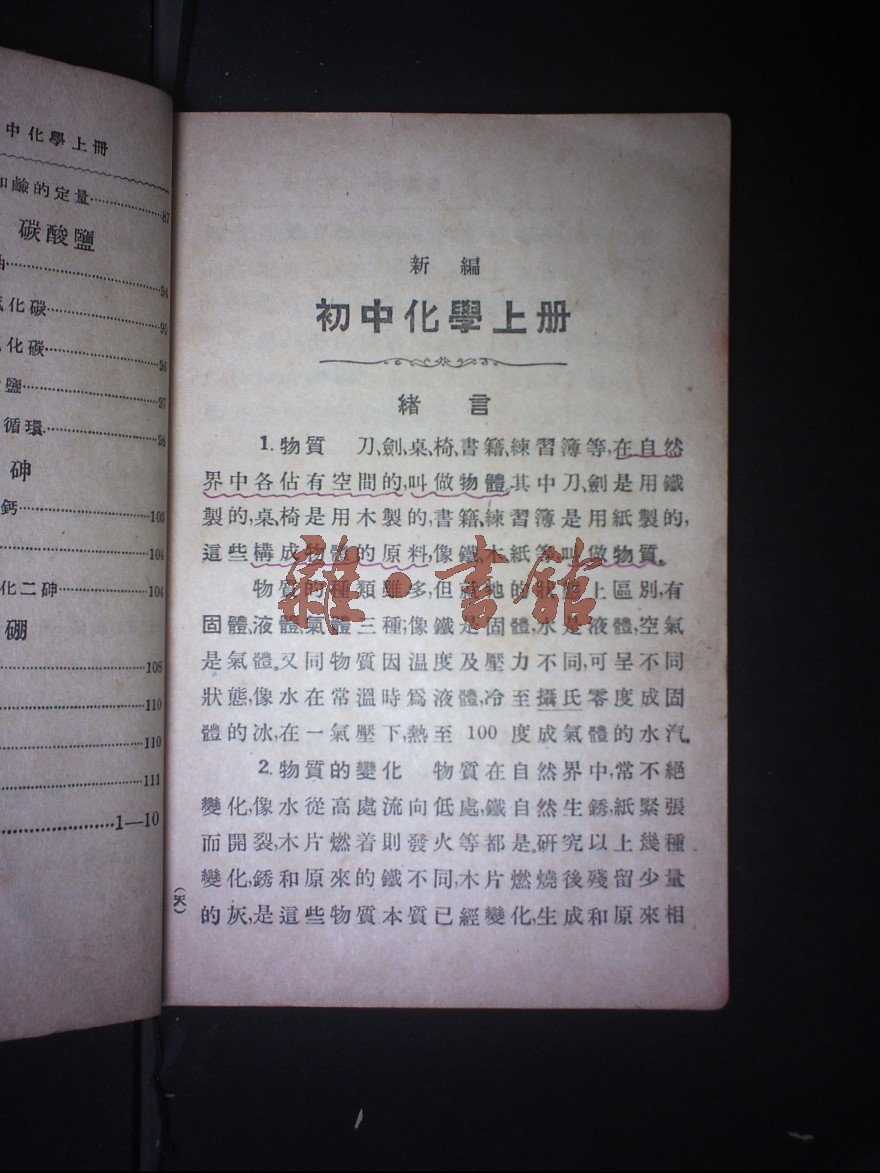 中化學上冊
和鹼的定量……87
碳酸鹽
……94
氧化碳……95
化碳……96
鹽……97
循環……98
砷
鈣……103
……104
化二砷……104
硼
……108
……110
……110
……111
……1—10
新編
初中化學上册
緒言
1. 物質 刀、劍、桌、椅、書籍、練習簿等,在自然
界中各佔有空間的,叫做物體.其中刀、劍是用鐵
製的,桌、椅是用木製的,書籍、練習簿是用紙製的,
這些構成物體的原料,像鐵、木、紙等叫做物質。
物質的種類雖多,但就牠的狀態上區別,有
固體、液體、氣體三種;像鐵是固體,水是液體,空氣
是氣體。又同物質因溫度及壓力不同,可呈不同
狀態,像水在常溫時爲液體,冷至攝氏零度成固
體的冰,在一氣壓下,熱至 100 度成氣體的水汽。
2. 物質的變化 物質在自然界中,常不絕
變化,像水從高處流向低處,鐵自然生銹,紙緊張
而開裂,木片燃着則發火等都是。研究以上幾種
變化,銹和原來的鐵不同,木片燃燒後殘留少量
的灰,是這些物質本質已經變化,生成和原來相
雜·書館